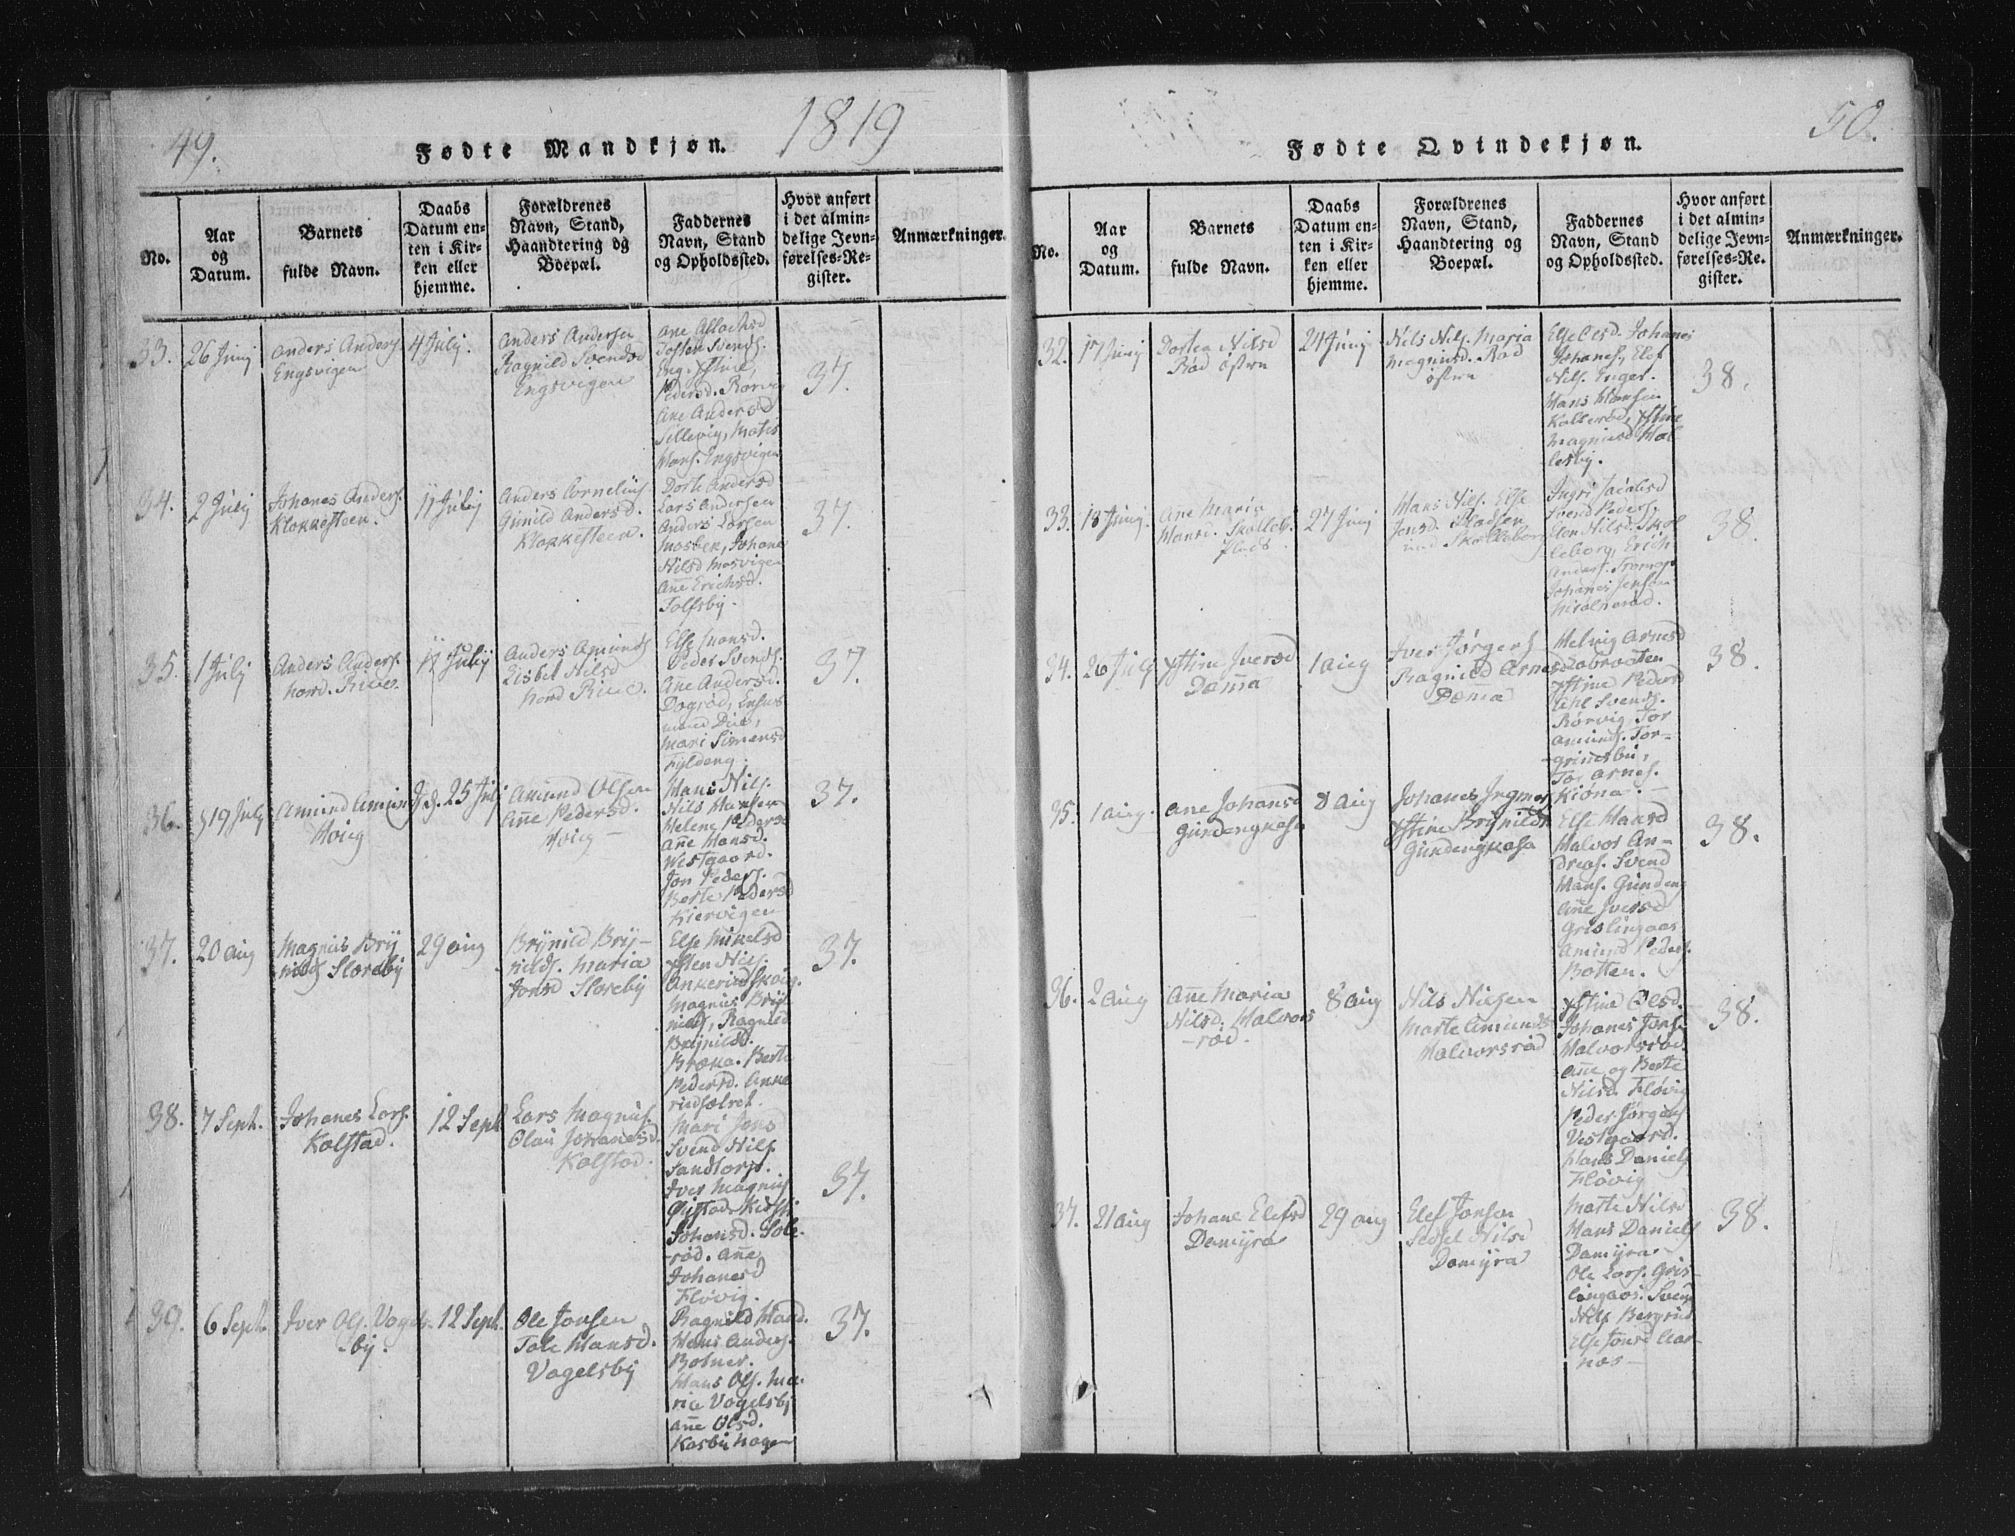 49.
Fødte Mandkjøn.
1819
No.
Aar
og
Datum.
Barnets
fulde Navn.
Daabs
Datum en-
ten i Kir-
ken eller
hjemme.
Forældrenes
Navn, Stand,
Haandtering og
Boepæl.
Faddernes
Navn, Stand
og Opholdssted.
Hvor anført
i det almin-
delige Jevn-
førelses-Re-
gister.
Anmærkninger.
33.
26 Junj
Anders Anders.
Engsvigen
4 Julj.
Anders Andersen
Ragnild Svendsd
Engsvigen
Tosten Svends.
Pedersd. Rørvig
Ane Andersd
Sillevig, Mats
Hans. Engsvigen
37.
34.
2 Julj
Johanes Anders.
Klokkesteen.
11 Julij
Anders Cornelius
Gunild Andersd.
Klokkesteen.
Dorte Andersd
Lars Andersen
Anders Larsen
Mosben, Johane
Nilsd Mosvigen
Ane Erichsd.
Tolfsby.
37.
35.
1 Julj
Anders Anders.
nord. Riue.
11 Julij
Anders Amunds
Lisbet Nilsd
nord Riue.
Else
Peder Svends.
Ane Andersd.
Mari Simensd
Fyldeng.
37.
36.
19 July
Amund Amund
Høieg
25 Julj
Amund Olsen
Ane Pedersd.
Høieg
Hans Nils.
Nils Hansen
Helene Pedersd
Ane Hansd.
Westgaard.
Jon Peders.
Berte Pedersd
Kiervigen
37.
37.
20 aug
Magnus Bry
nilds Sloreby
29 aug
Brynild Bry-
nilds. Maria
Jonsd Sloreby
Else Mikelsd
Ysten Nils.
Magnus Bry
nilds, Ragnild
Brynildsd.
Bræka. Berte
Pedersd. Anke
37.
38.
7 Sept.
Johanes Lars.
Kolstad.
12 Sept
Lars Magnus.
Olau Johanesd.
Kolstad.
Mari Jons
Svend Nils
Sandtorp.
Iver Magnus
Johansd. Sole-
rød. Ane
Johanesd
Fløvig.
37.
39.
6 Sept.
Iver Ols. Vogels-
by.
12 Sept.
Ole Jonsen
Tale Hansd.
Vogelsby
Ragnild Hansd.
Hans Anders.
Botner.
Hans Ols. Ma-
rie Vogelsby
Ane Olsd.
Kasbu hagen
37.
50.
Fødte Qvindekjøn.
No.
Aar
og
Datum.
Barnets
fulde Navn.
Daabs
Datum en-
ten i Kir-
ken eller
hjemme.
Forældrenes
Navn, Stand,
Haandtering og
Boepæl.
Faddernes
Navn, Stand
og Opholdssted.
Hvor anført
i det almin-
delige Jevn-
førelses-Re-
gister.
Anmærkninger.
32.
17 Junij
Dortea Nilsd
Rød østen
24 Junij
Nils Nils. Maria
Magnusd. Rød
østen
Johanes
Johanes, Elef
Nils. Enger.
Hans Hansen
Kollerød, Ystine
Magnusd Hal
lesby.
38.
33.
18 Junij.
Ane Maria
Hansd. Skolleb.
Plads.
27 Junj
Hans Nils. Else
Jensd. Pladsen
und Skolleborg
Svend Peders.
Elen Nilsd. Skol
leborg, Erich
Anders. Tromop
Johanes Jensen
38.
34.
26 July
Ystine Iversd
Dæma
1 aug
Iver Jørgens
Ragnild Arnesd
Dæma
Helvig Arnesd
Labraaten.
Ystine Pedersd
Svends.
Rørvig, Tor
Amunds. Tor-
grimsbu,
Tor Arnes.
Kiøna.
38.
35.
1 aug.
Ane Johansd
Gundengkasa
8 Aug
Johanes Ingmars
Ystine Brynildsd
Gundengkasa
Else Hansd
Halvor An-
dreas. Svend
Hans. Gundeng
Ane Iversd
Grislingaas
Amund Peders.
Botten.
38.
36.
2 aug
Ane Maria
Nilsd. Halvors
-rød.
8 aug
Nils Nilsen
Marte Amundsd
Halvorsrød
Ystine Olsd.
Johanes Jons.
Halvorsrød.
Ane og Berte
Nilsd. Fløvig
Peder Jørgens
Vestgaard.
Hans Daniels
Fløvig
38.
37.
21 aug
Johane Elefsd
Damyra
29 aug
Elef Jonsen
Sedsel Nilsd
Damyra
Marte Nilsd
Hans Daniels
Damyra
Ole Lars. Gris-
lingaas. Svend
Nils Bergerud
Else Jonsd Aar-
næs
38.